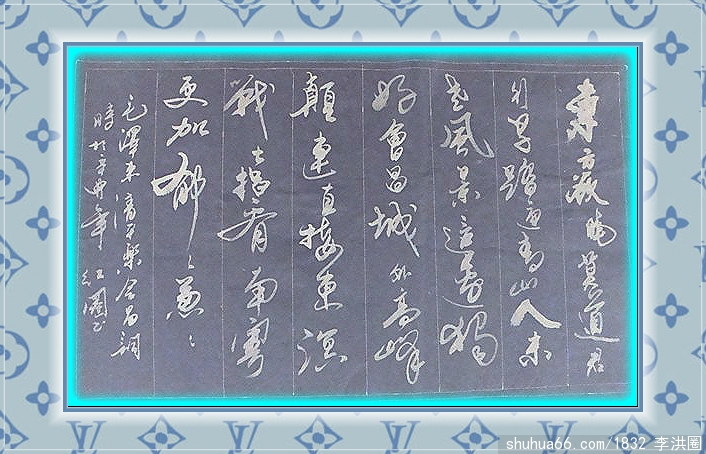 東方欲曉莫道君
行早踏遍青山人未
老風景這邊獨
好會昌城外高峰
顛連直接東溟
戰士指看南粵
更加郁々葱々
毛澤東清平樂會昌調
時於辛丑年 洪圈书
shuhua66.com/1832 李洪圈